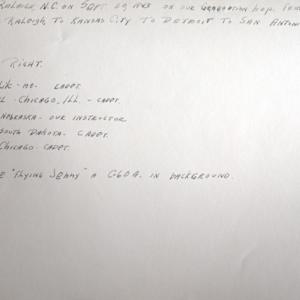 Raleigh, N.C. on Sept 29 1943 on our graduation hop. From
Raleigh to Kansas City to Detroit to San Anton
Right.
me. Cadet.
Chicago, Ill. - Cadet.
Nebraska - our instructor
South Dakota - Cadet.
Chicago - Cadet.
"Flying Jenny" a CG4A. in background.